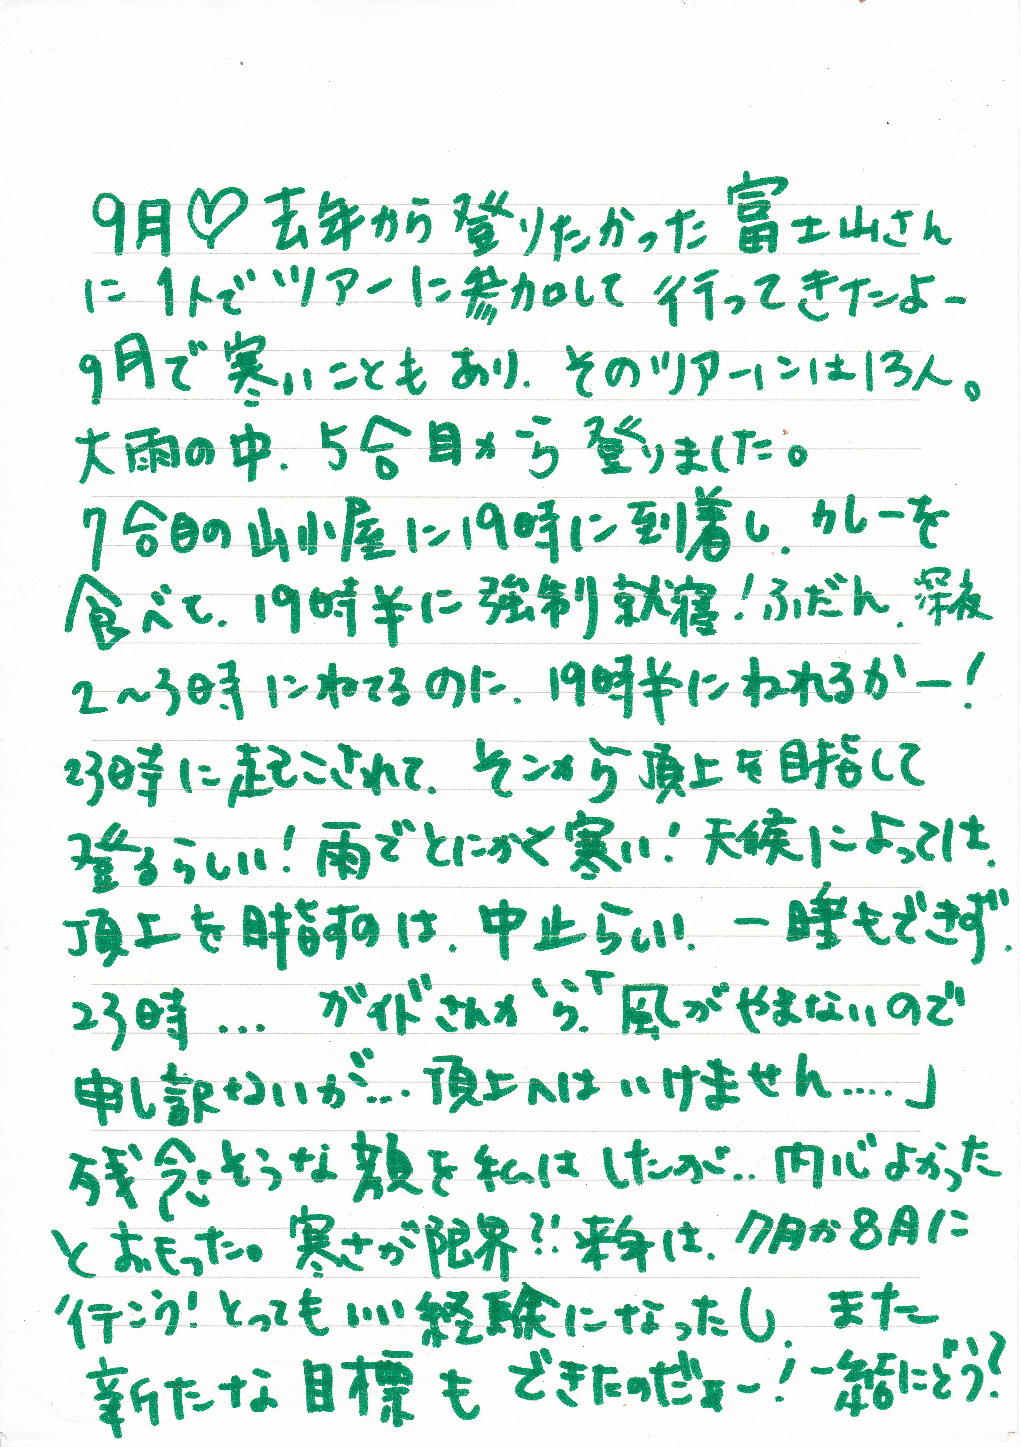 9月♡去年から登りたかった富士山さん
に1人でツアーに参加して行ってきたよー
9月で寒いこともあり、そのツアーには13人。
大雨の中、5合目から登りました。
7合目の山小屋に19時に到着し、カレーを
食べて、19時半に強制就寝!ふだん、深夜
2〜3時にねてるのに、19時半にねれるかー!
23時に起こされて、そこから頂上を目指して
登るらしい!雨でとにかく寒い!天候によっては、
頂上を目指すのは、中止らしい、一睡もできず、
23時... ガイドさんから、「風がやまないので
申し訳ないが...頂上へはいけません....」
残念そうな顔を私はしたが..内心よかった
とおもった。寒さが限界?!来年は、7月か8月に
行こう!とってもいい経験になったし、また
新たな目標もできたのだぁー!一緒にどう?